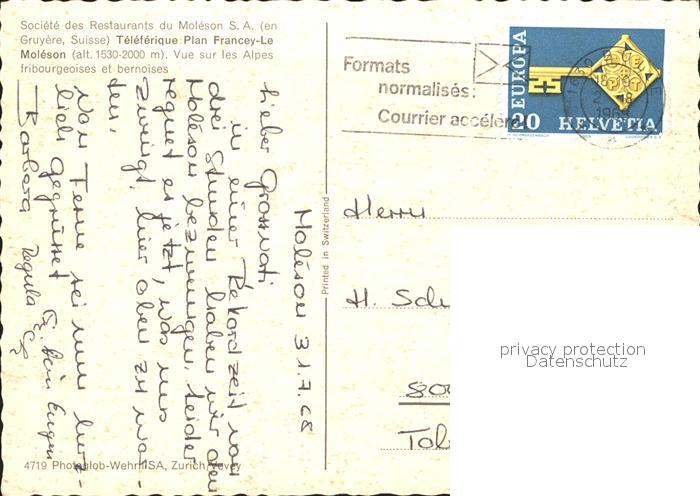 Société des Restaurants du Moléson S. A. (en
Gruyère, Suisse) Téléférique Plan Francey-Le
Moléson (alt. 1530-2000 m). Vue sur les Alpes
fribourgeoises et bernoises
Moléson 31.7.68
Lieber Grossvati
in einer Rekordzeit von
drei Stunden haben wir den
Moléson bezwungen. Leider
regnet es jetzt, was uns
zwingt, hier oben zu war-
ten.
Von Ferne sei nun herz-
lich gegrüsst
Barbara Regula
Eugen
4719 Photoglob-Wehrli SA, Zurich/Vevey
Printed in Switzerland
Formats
normalisés:
Courrier accéléré
EUROPA
20 HELVETIA
1968
Herrn
H. Sch
800
Tob
privacy protection
Datenschutz